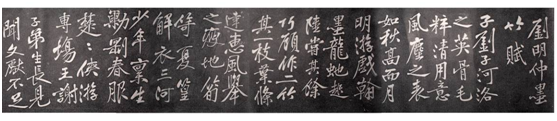 劉明仲墨
竹賦
子劉子河洛
之英骨毛
粹清用意
風塵之表
如秋高而月
明游戲翰
墨龍蛇起
陸嘗其餘
巧顧作二竹
其一枝葉條
達惠風舉
之瘦地筍
笴夏篁
解衣三河
少年稟生
勁剛春服
楚楚俠游
專場王謝
子弟生長見
聞文獻不足